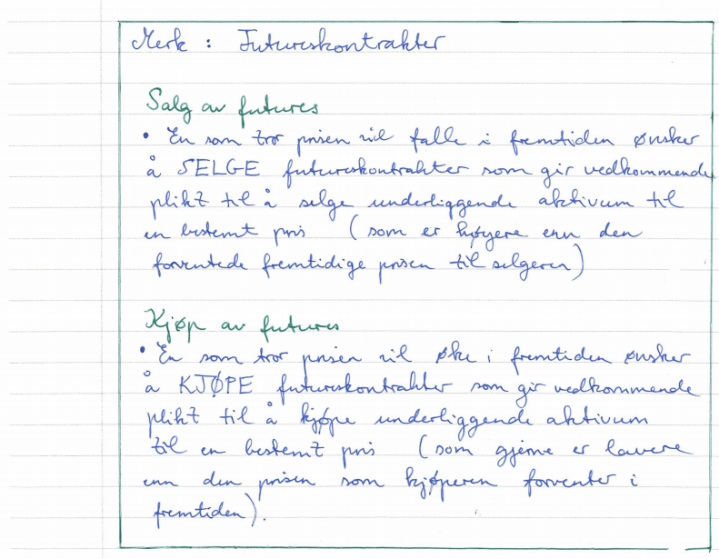 Merk : Futureskontrakter
Salg av futures
• En som tror prisen vil falle i fremtiden ønsker
å SELGE futureskontrakter som gir vedkommende
plikt til å selge underliggende aktivum til
en bestemt pris (som er høyere enn den
forventede fremtidige prisen til selgeren)
Kjøp av futures
• En som tror prisen vil øke i fremtiden ønsker
å KJØPE futureskontrakter som gir vedkommende
plikt til å kjøpe underliggende aktivum
til en bestemt pris (som gjerne er lavere
enn den prisen som kjøperen forventer i
fremtiden).